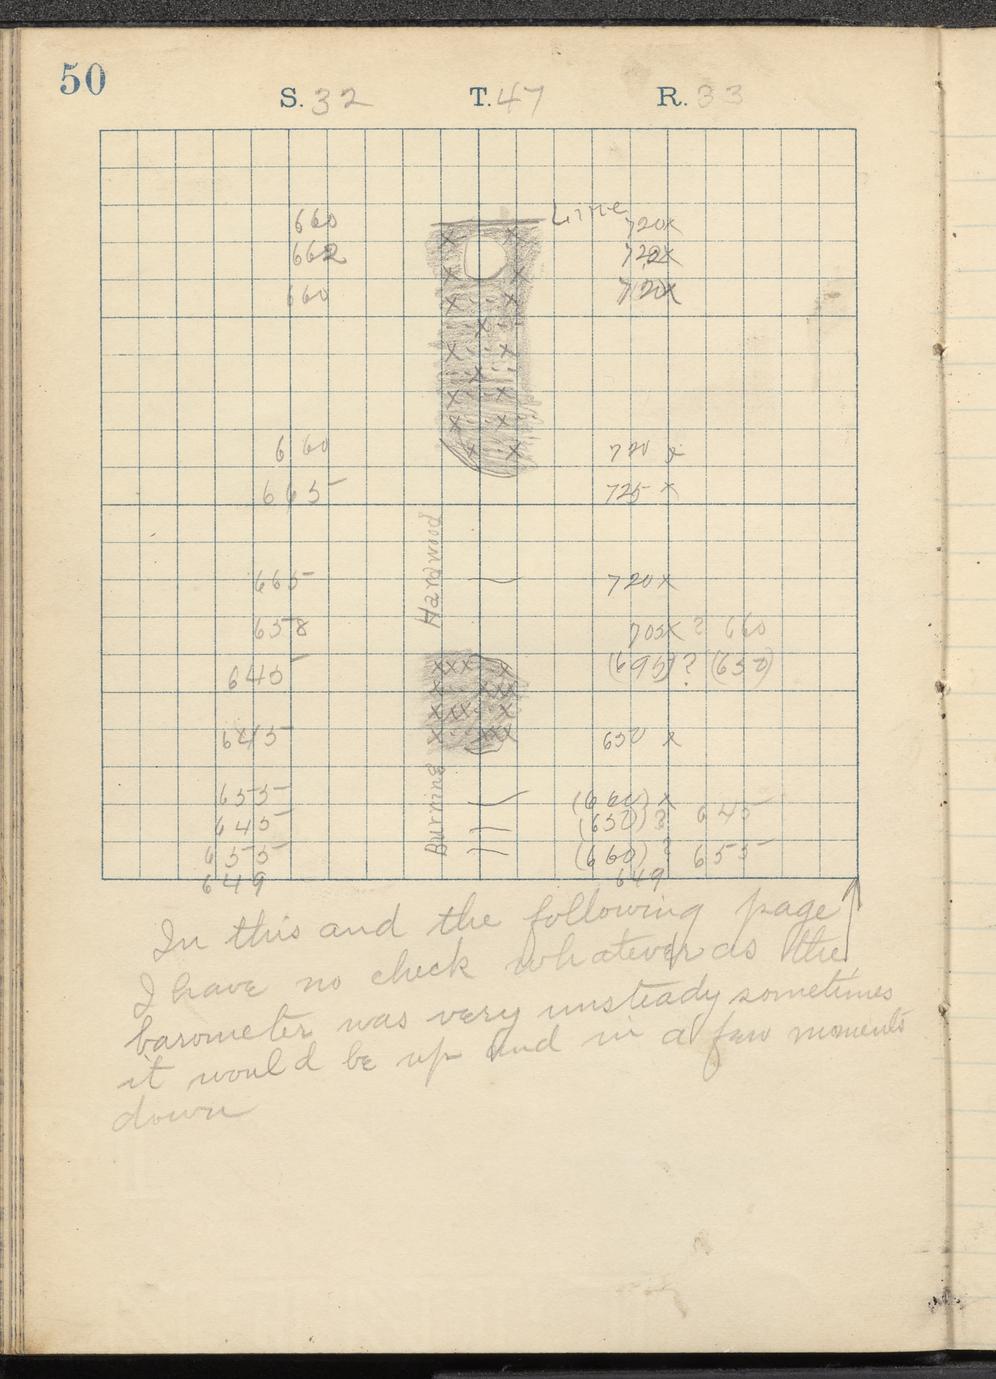 50
S. 32 T. 47 R. 33
Line
660 720x
662 722x
660 720x
660 720 x
665 725 x
Hardwood
665 720x
658 705x ? 660
645 (695)? (650)
645 650 x
Burning
655 (660) x
645 (650) ? 645
655 (660) ? 655
649 649
In this and the following page
I have no check whatever as the
barometer was very unsteady sometimes
it would be up and in a few moments
down